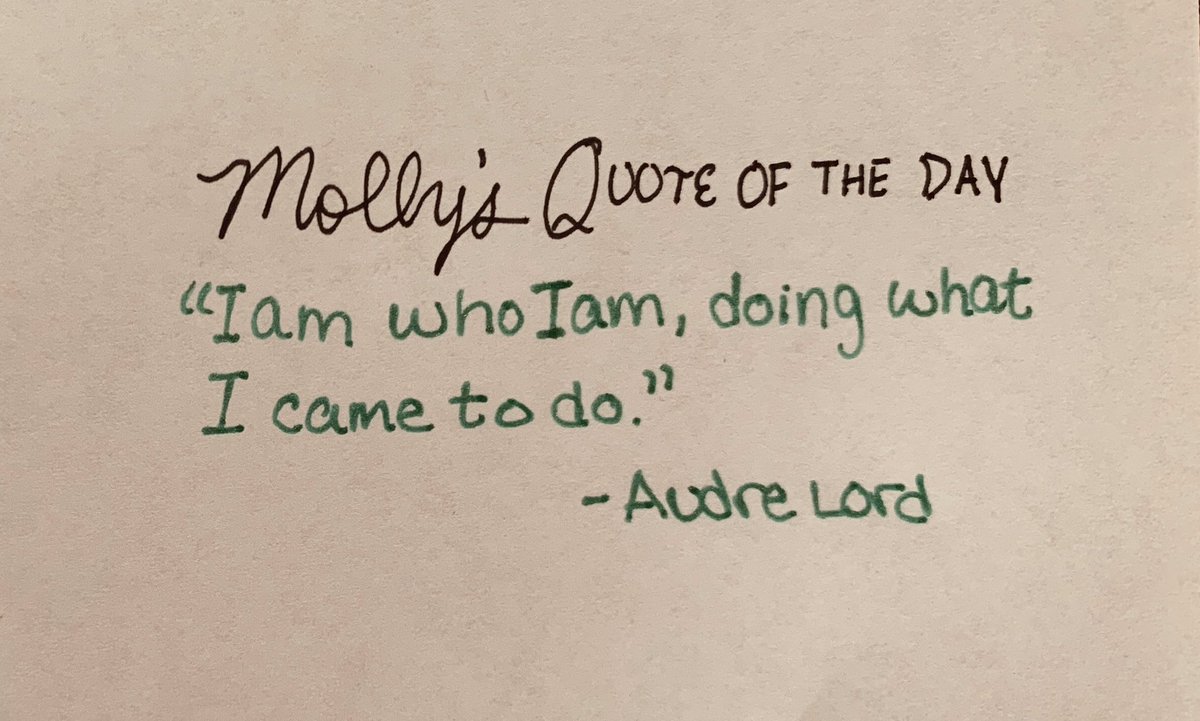 Molly's Quote of the Day
“I am who I am, doing what
I came to do.”
- Audre Lord